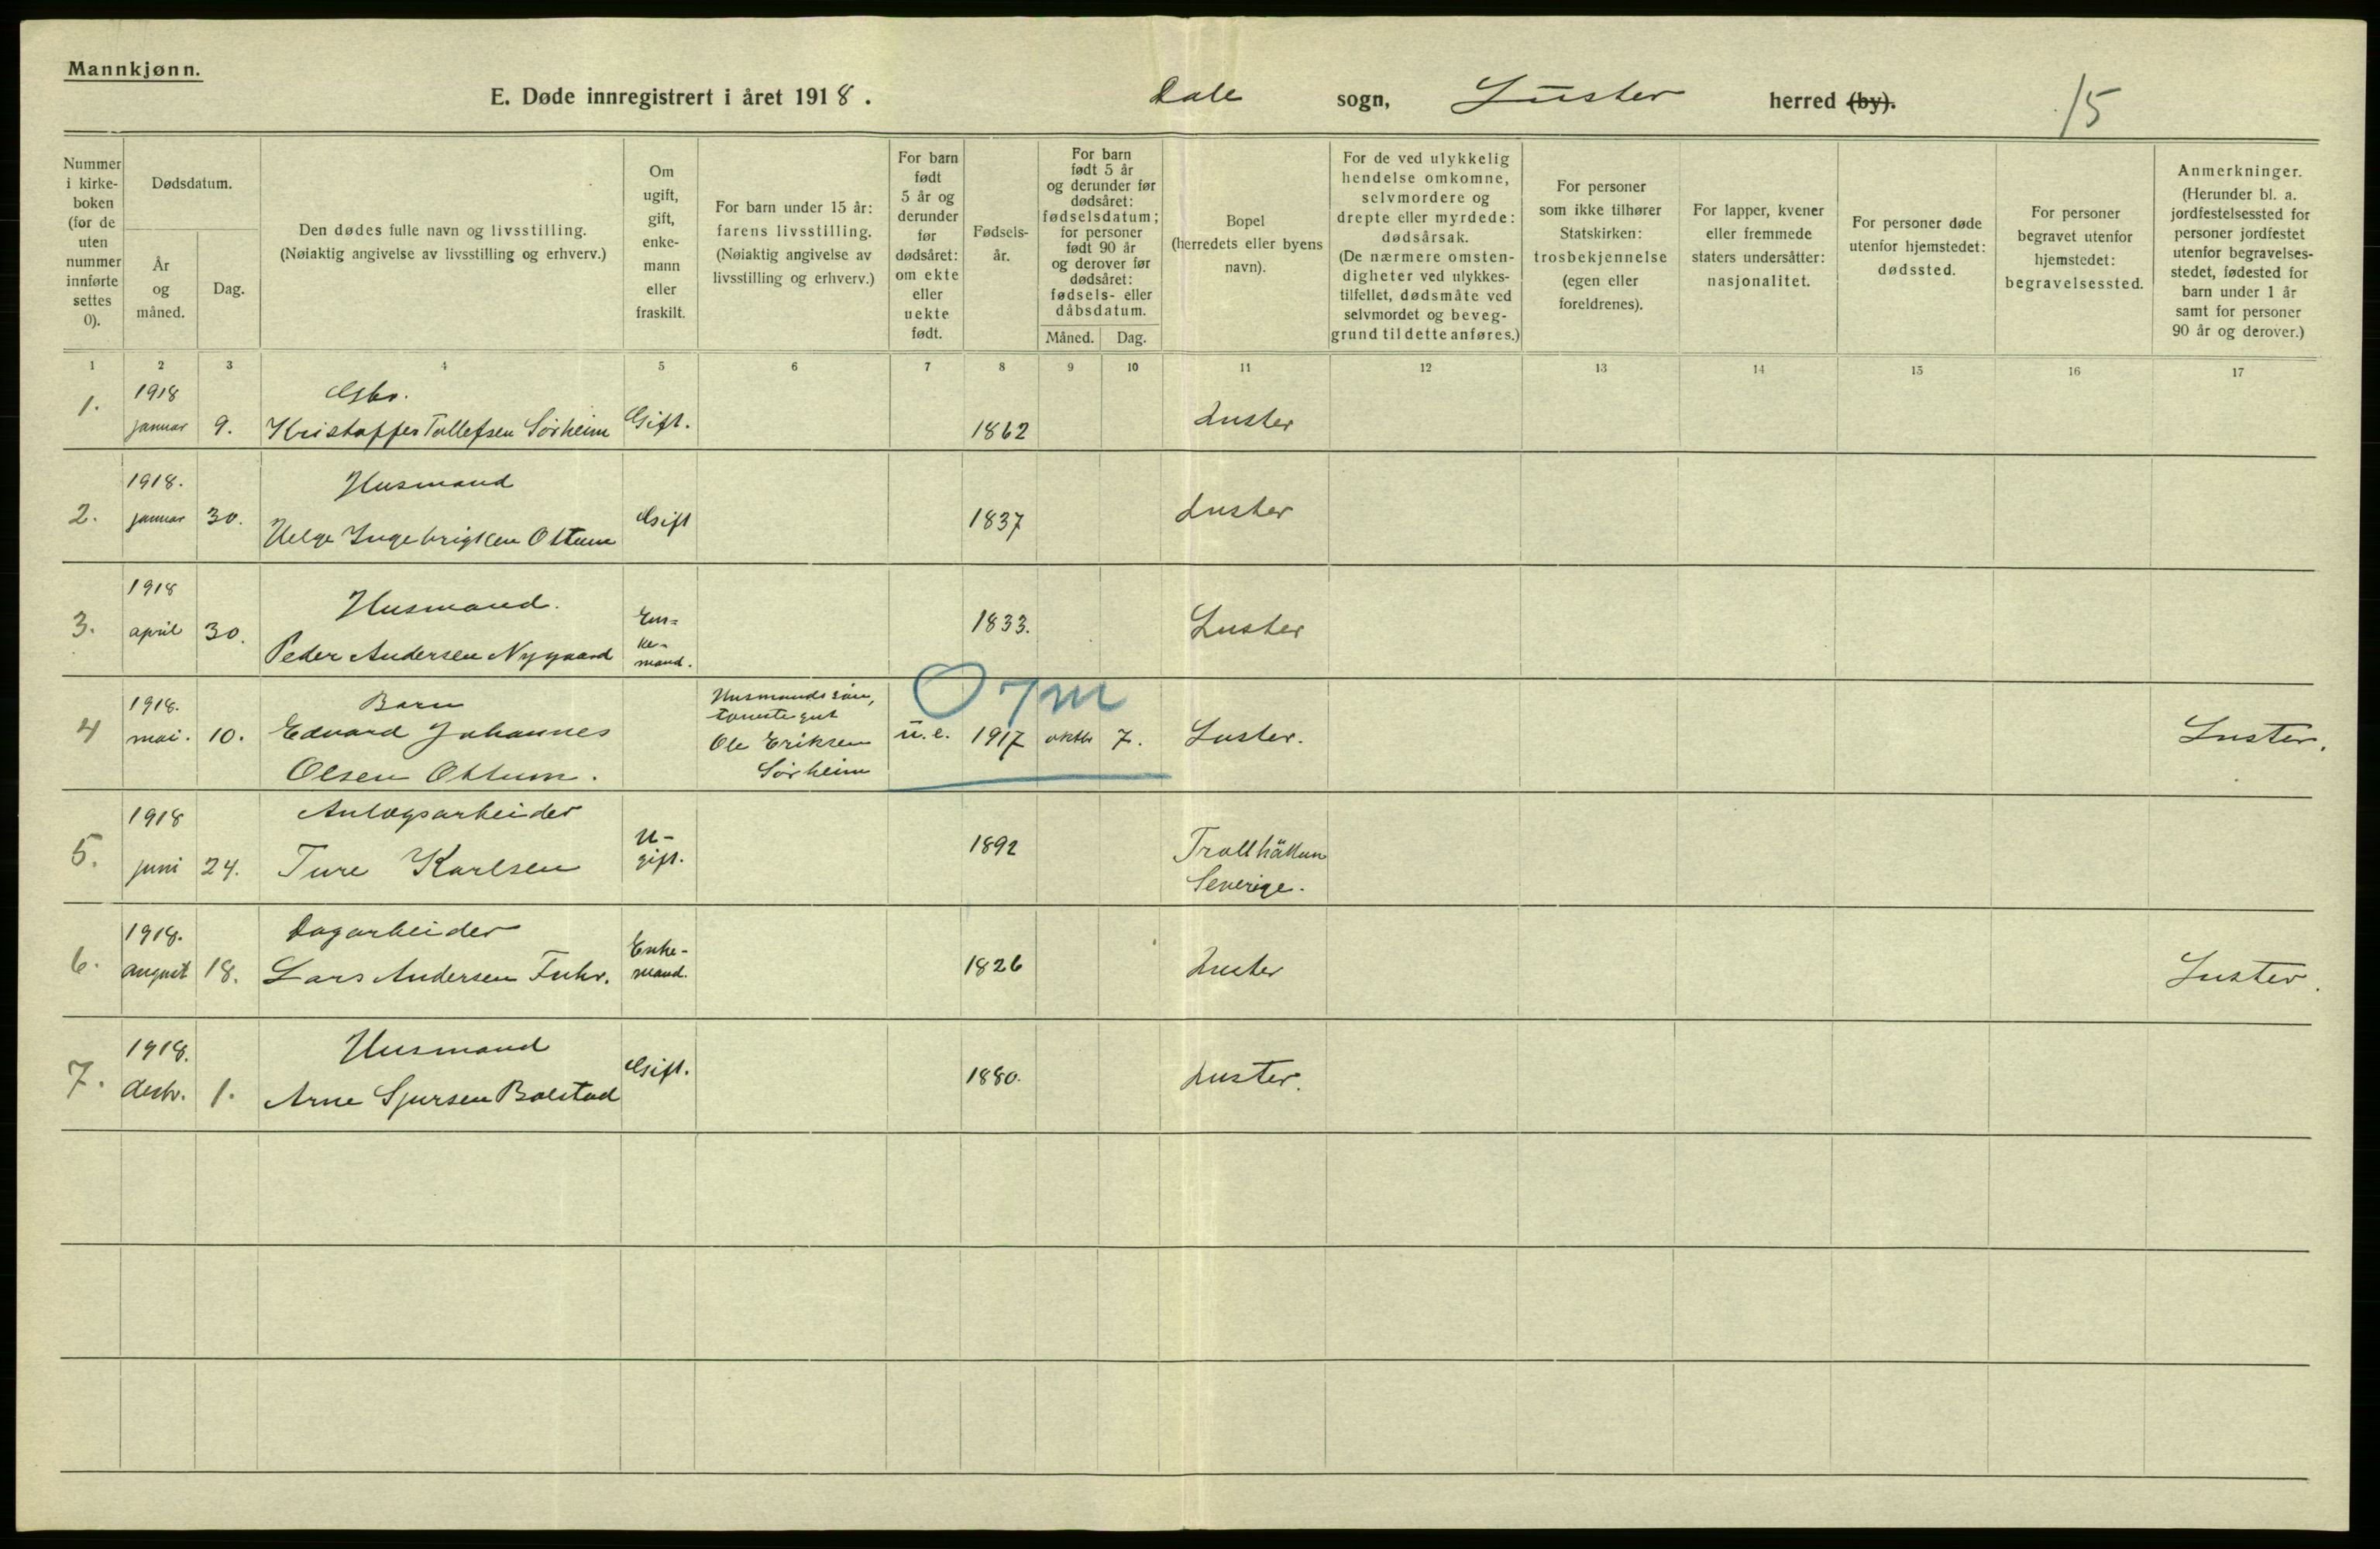 Mannkjønn.
E. Døde innregistrert i året 1918. Dale sogn, Luster herred (by). 15
Nummer i kirke-boken (for de uten nummer innførte settes 0).
Dødsdatum.
År og måned.
Dag.
Den dødes fulle navn og livsstilling.
(Nøiaktig angivelse av livsstilling og erhverv.)
Om ugift, gift, enke-mann eller fraskilt.
For barn under 15 år: farens livsstilling.
(Nøiaktig angivelse av livsstilling og erhverv.)
For barn født 5 år og derunder før dødsåret: om ekte eller uekte født.
Fødsels-år.
For barn født 5 år og derunder før dødsåret: fødselsdatum; for personer født 90 år og derover før dødsåret: fødsels- eller dåbsdatum.
Måned. Dag.
Bopel (herredets eller byens navn).
For de ved ulykkelig hendelse omkomne, selvmordere og drepte eller myrdede: dødsårsak.
(De nærmere omsten-digheter ved ulykkes-tilfellet, dødsmåte ved selvmordet og beveg-grund til dette anføres.)
For personer som ikke tilhører Statskirken: trosbekjennelse (egen eller foreldrenes).
For lapper, kvener eller fremmede staters undersåtter: nasjonalitet.
For personer døde utenfor hjemstedet: dødssted.
For personer begravet utenfor hjemstedet: begravelsessted.
Anmerkninger.
(Herunder bl. a. jordfestelsessted for personer jordfestet utenfor begravelses-stedet, fødested for barn under 1 år samt for personer 90 år og derover.)
1 2 3 4 5 6 7 8 9 10 11 12 13 14 15 16 17
1. 1918 januar 9. Gbr. Kristoffer Tollefsen Sørheim Gift. 1862 Luster
2. 1918. januar 30. Husmand Helge Ingebrigtsen Ottum Gift 1837 Luster
3. 1918 april 30. Husmand. Peder Andersen Nygaard En=ke-mand. 1833. Luster
4 1918. mai. 10. Barn Edvard Johannes Olsen Ottum. Husmandssøn, Ole Eriksen Sørheim u.e. 1917 oktbr 7. Luster. Luster.
0 7m
5. 1918 juni 24. Anlægsarbeider Ture Karlsen U-gift. 1892 Trollhättan Sverige.
6. 1918. august 18. Dagarbeider Lars Andersen Fuhr. Enke-mand. 1826 Luster Luster.
7. 1918. desbr. 1. Husmand Arne Sjursen Bolstad Gift. 1880. Luster.